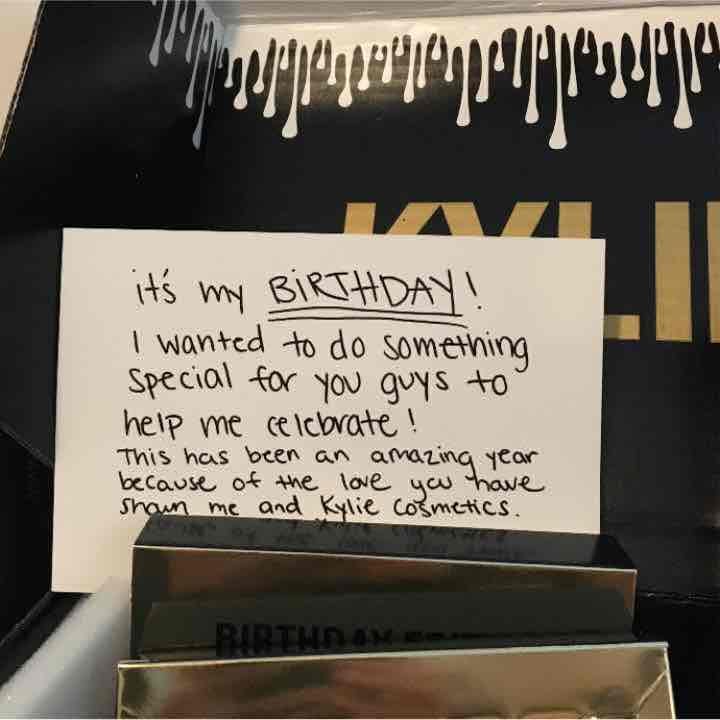 KYLI
it's my BIRTHDAY!
I wanted to do something
special for you guys to
help me celebrate!
This has been an amazing year
because of the love you have
shown me and Kylie Cosmetics.
BIRTHDAY